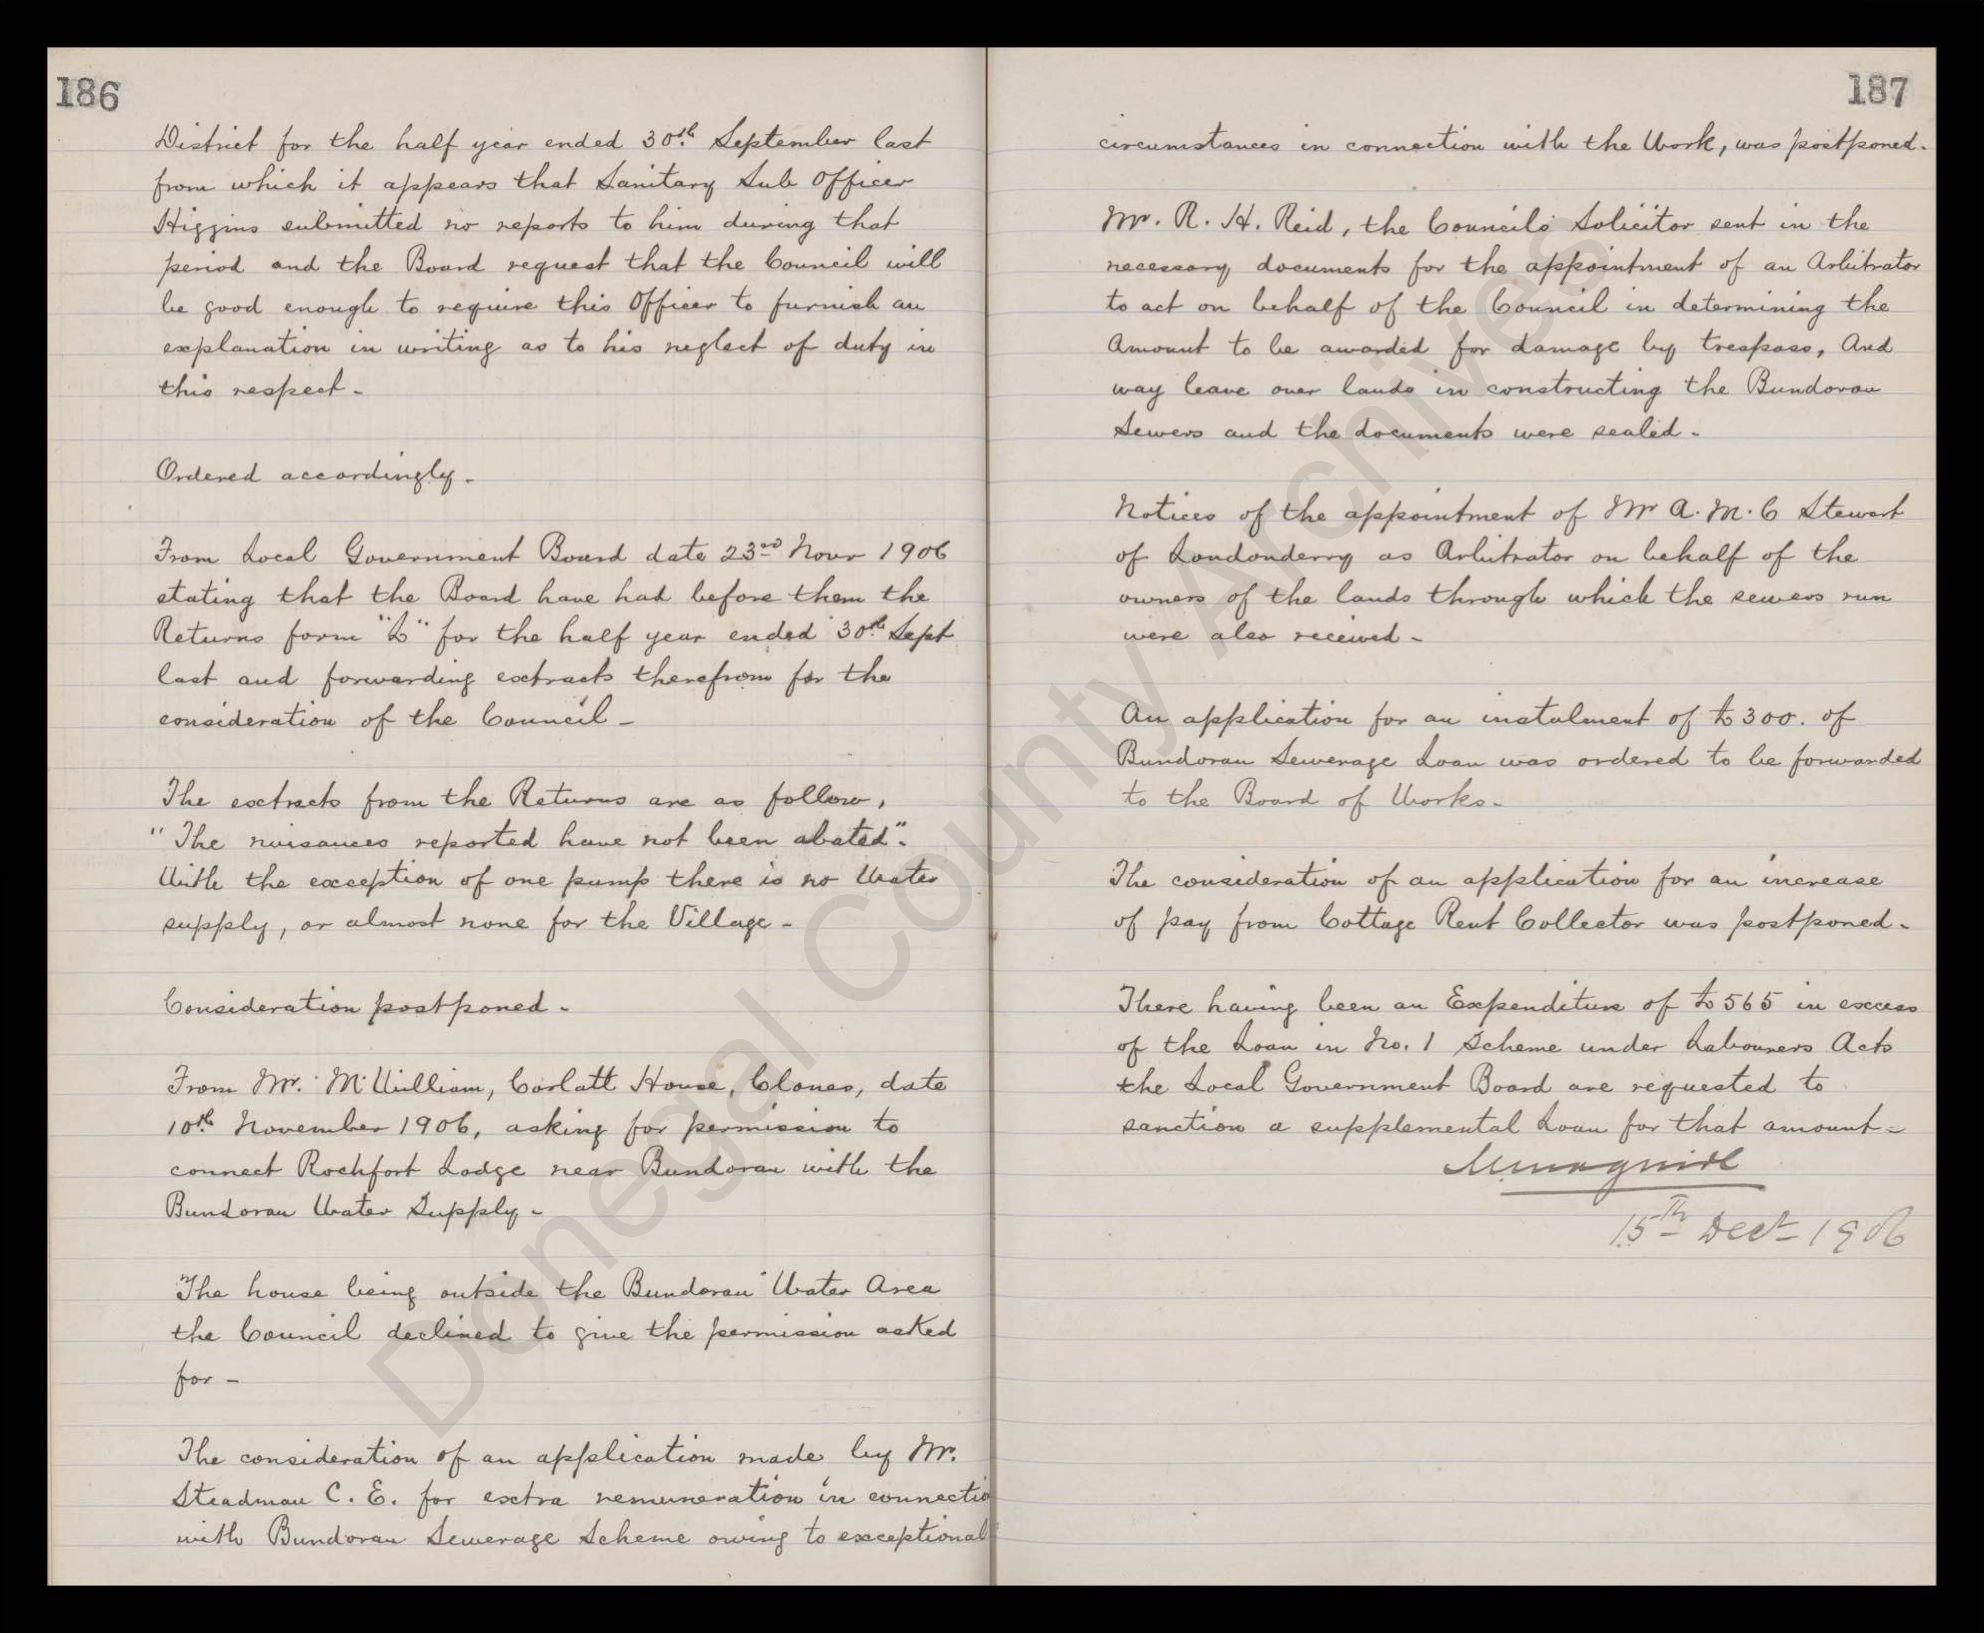 186
District for the half year ended 30th September last
from which it appears that Sanitary Sub Officer
Higgins submitted no reports to him during that
period and the Board request that the Council will
be good enough to require this Officer to furnish an
explanation in writing as to his neglect of duty in
this respect -
Ordered accordingly -
From Local Government Board date 23rd Novr 1906
stating that the Board have had before them the
Returns form "L" for the half year ended 30th Sept
last and forwarding extracts therefrom for the
consideration of the Council -
The extracts from the Returns are as follow,
"The nuisances reported have not been abated".
With the exception of one pump there is no Water
supply, or almost none for the Village -
Consideration postponed -
From Mr. McWilliam, Corlatt House, Clones, date
10th November 1906, asking for permission to
connect Rochfort Lodge near Bundoran with the
Bundoran Water Supply -
The house being outside the Bundoran Water Area
the Council declined to give the permission asked
for -
The consideration of an application made by Mr.
Steadman C. E. for extra remuneration in connectio
with Bundoran Sewerage Scheme owing to exceptional
187
circumstances in connection with the Work, was postponed -
Mr. R. H. Reid, the Councils Solicitor sent in the
necessary documents for the appointment of an Arbitrator
to act on behalf of the Council in determining the
Amount to be awarded for damage by trespass, And
way leave over lands in constructing the Bundoran
Sewers and the documents were sealed -
Notices of the appointment of Mr A. M. C Stewart
of Londonderry as Arbitrator on behalf of the
owners of the lands through which the sewers run
were also received -
An application for an instalment of £300. of
Bundoran Sewerage Loan was ordered to be forwarded
to the Board of Works -
The consideration of an application for an increase
of pay from Cottage Rent Collector was postponed -
There having been an Expenditure of £565 in excess
of the Loan in No. 1 Scheme under Labourers Acts
the Local Government Board are requested to
sanction a supplemental Loan for that amount -
15th Decr 1906
Donegal County Archives